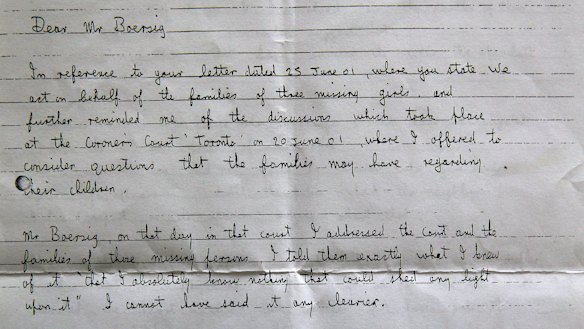 Dear Mr Boersig
In reference to your letter dated 25 June 01, where you state We
act on behalf of the families of three missing girls, and
further reminded me of the discussions which took place
at the Coroners Court 'Toronto' on 20 June 01, where I offered to
consider questions that the families may have regarding
their children.
Mr Boersig, on that day in that court I addressed the Court and the
families of those missing persons I told them exactly what I knew
of it "that I absolutely know nothing that could shed any light
upon it" I cannot have said it any clearier.